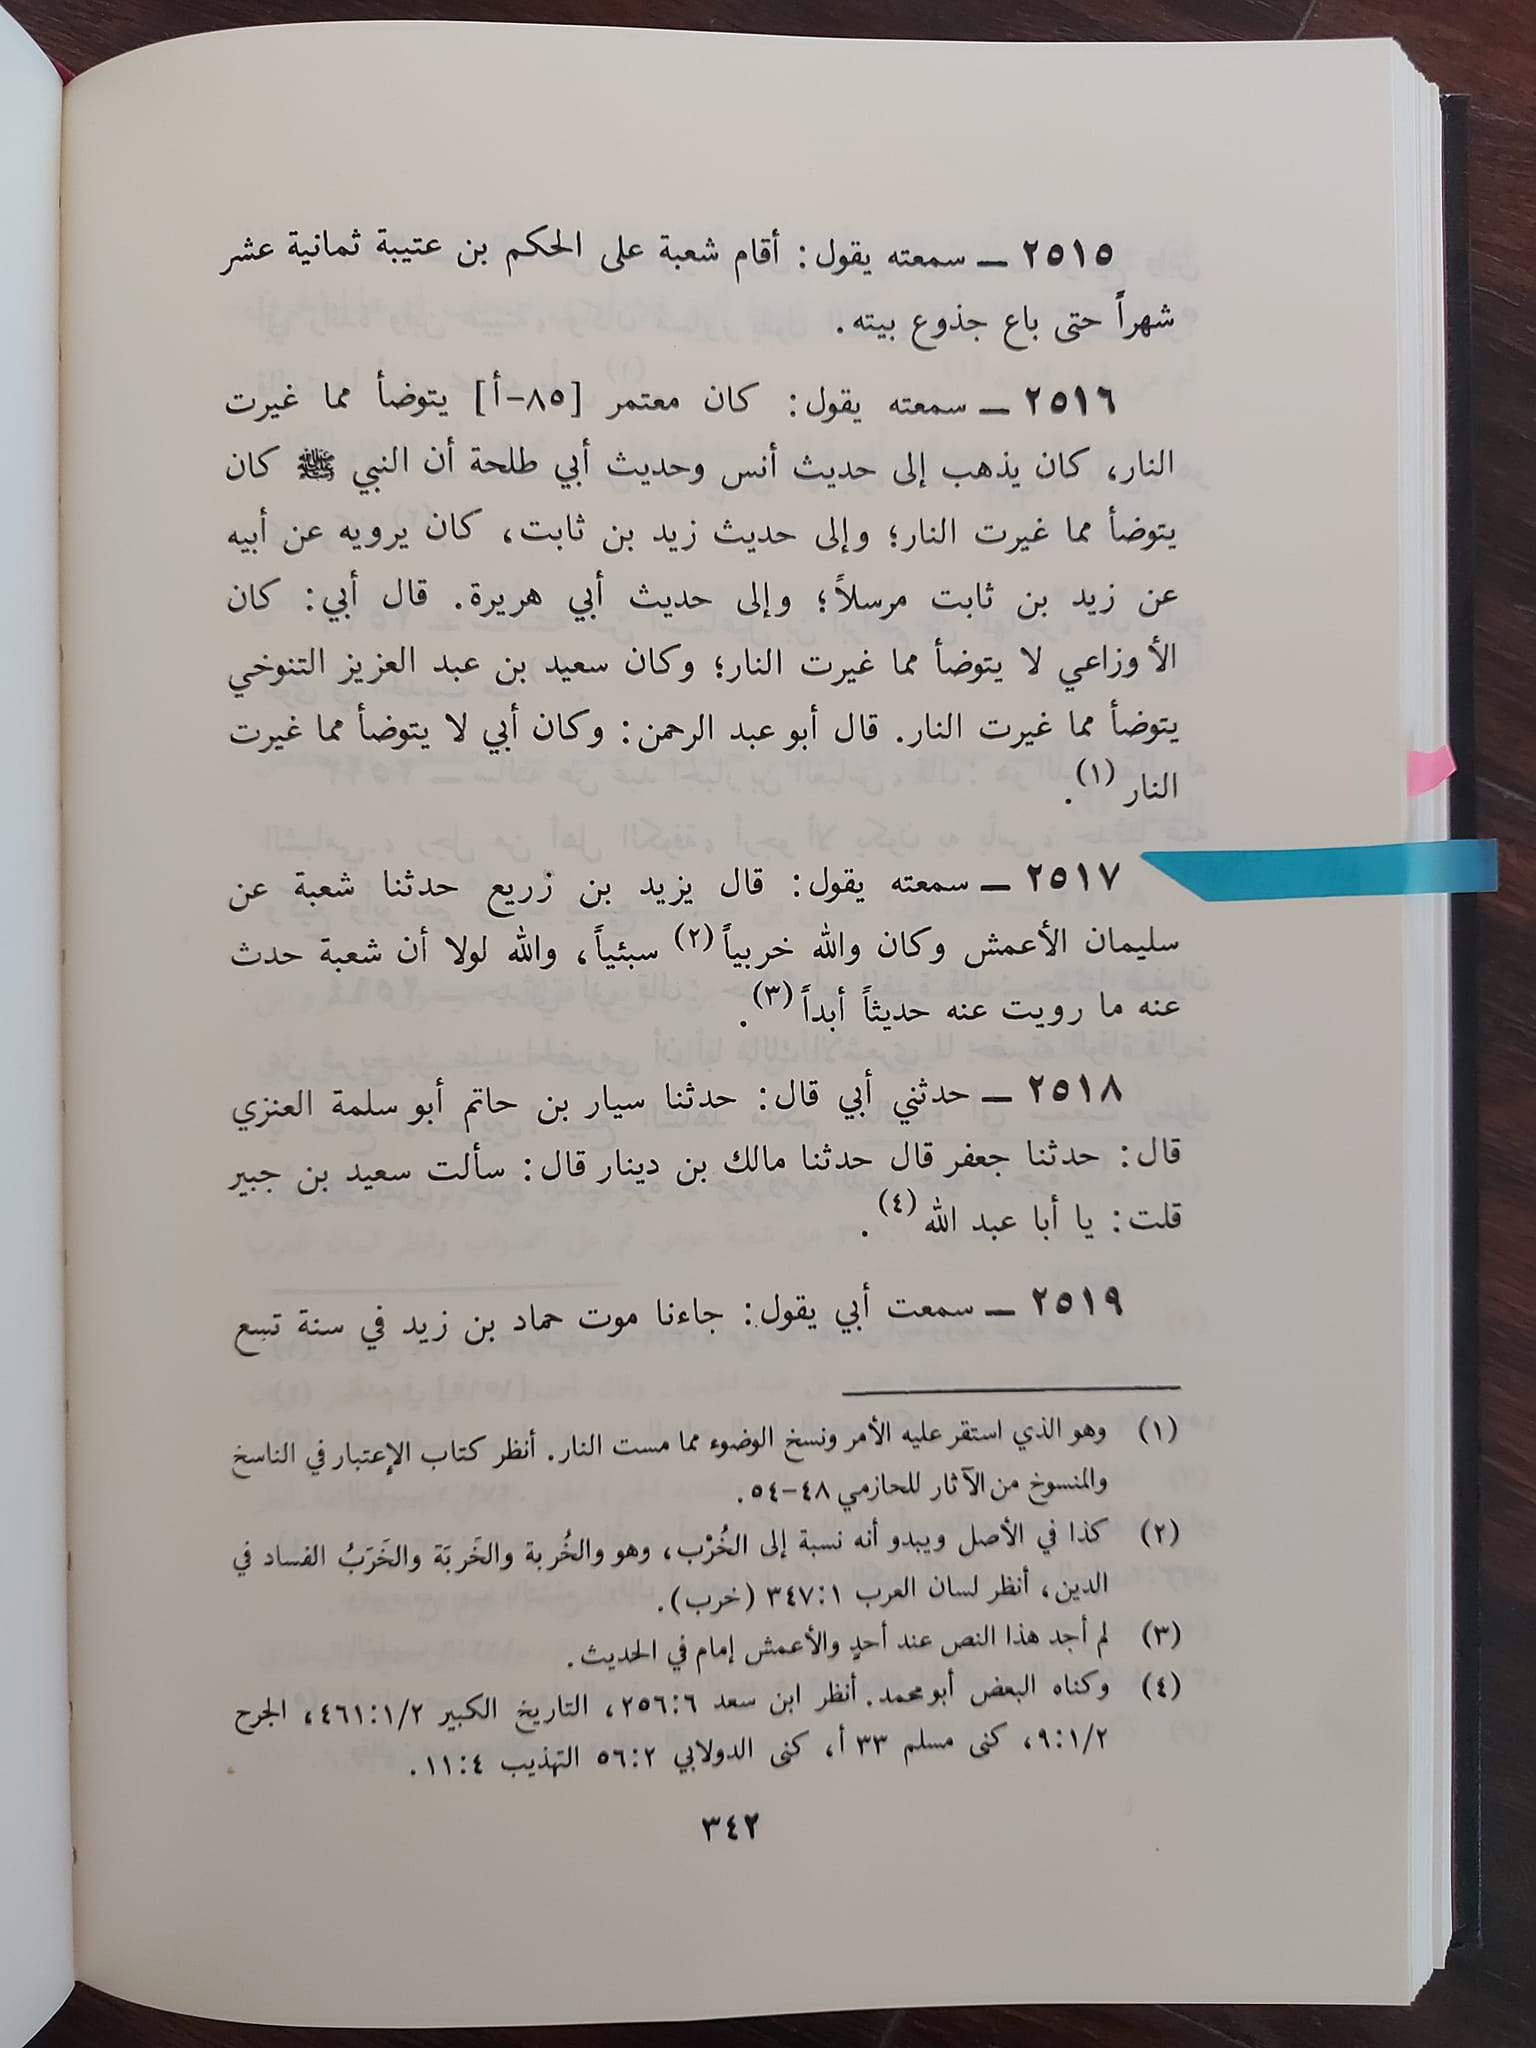 ٢٥١٥ ــ سمعته يقول: أقام شعبة على الحكم بن عتيبة ثمانية عشر
شهراً حتى باع جذوع بيته.
٢٥١٦ ــ سمعته يقول: كان معتمر [٨٥-أ] يتوضأ مما غيرت
النار، كان يذهب إلى حديث أنس وحديث أبي طلحة أن النبي ﷺ كان
يتوضأ مما غيرت النار؛ وإلى حديث زيد بن ثابت، كان يرويه عن أبيه
عن زيد بن ثابت مرسلاً؛ وإلى حديث أبي هريرة. قال أبي: كان
الأوزاعي لا يتوضأ مما غيرت النار؛ وكان سعيد بن عبد العزيز التنوخي
يتوضأ مما غيرت النار. قال أبو عبد الرحمن: وكان أبي لا يتوضأ مما غيرت
النار (١).
٢٥١٧ ــ سمعته يقول: قال يزيد بن زريع حدثنا شعبة عن
سليمان الأعمش وكان والله خربياً (٢) سبئياً، والله لولا أن شعبة حدث
عنه ما رويت عنه حديثاً أبداً (٣).
٢٥١٨ ــ حدثني أبي قال: حدثنا سيار بن حاتم أبو سلمة العنزي
قال: حدثنا جعفر قال حدثنا مالك بن دينار قال: سألت سعيد بن جبير
قلت: يا أبا عبد الله (٤).
٢٥١٩ ــ سمعت أبي يقول: جاءنا موت حماد بن زيد في سنة تسع
(١) وهو الذي استقر عليه الأمر ونسخ الوضوء مما مست النار. أنظر كتاب الإعتبار في الناسخ
والمنسوخ من الآثار للحازمي ٤٨-٥٤.
(٢) كذا في الأصل ويبدو أنه نسبة إلى الخُرْب، وهو والخُربة والخَربَة والخَرَبُ الفساد في
الدين، أنظر لسان العرب ٣٤٧:١ (خرب).
(٣) لم أجد هذا النص عند أحدٍ والأعمش إمام في الحديث.
(٤) وكناه البعض أبو محمد. أنظر ابن سعد ٢٥٦:٦، التاريخ الكبير ٤٦١:١/٢، الجرح
٩:١/٢، كنى مسلم ٣٣ أ، كنى الدولابي ٥٦:٢ التهذيب ١١:٤.
٣٤٢